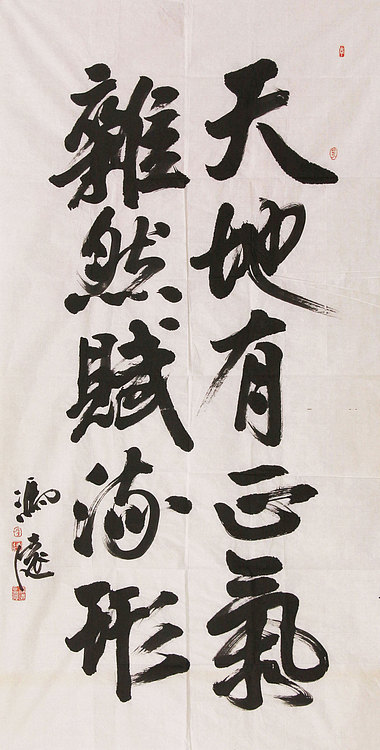 天地有正氣
雜然賦流形
馮遠